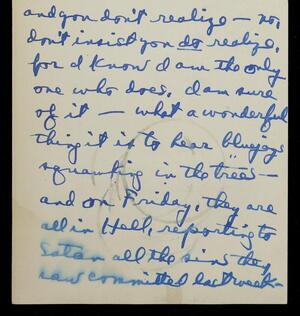 and you don't realize — no,
don't insist you do realize,
for I know I am the only
one who does. I am sure
of it — what a wonderful
thing it is to hear bluejays
squawking in the trees —
and on Friday, they are
all in Hell, reporting to
Satan all the sins they
saw committed last week —